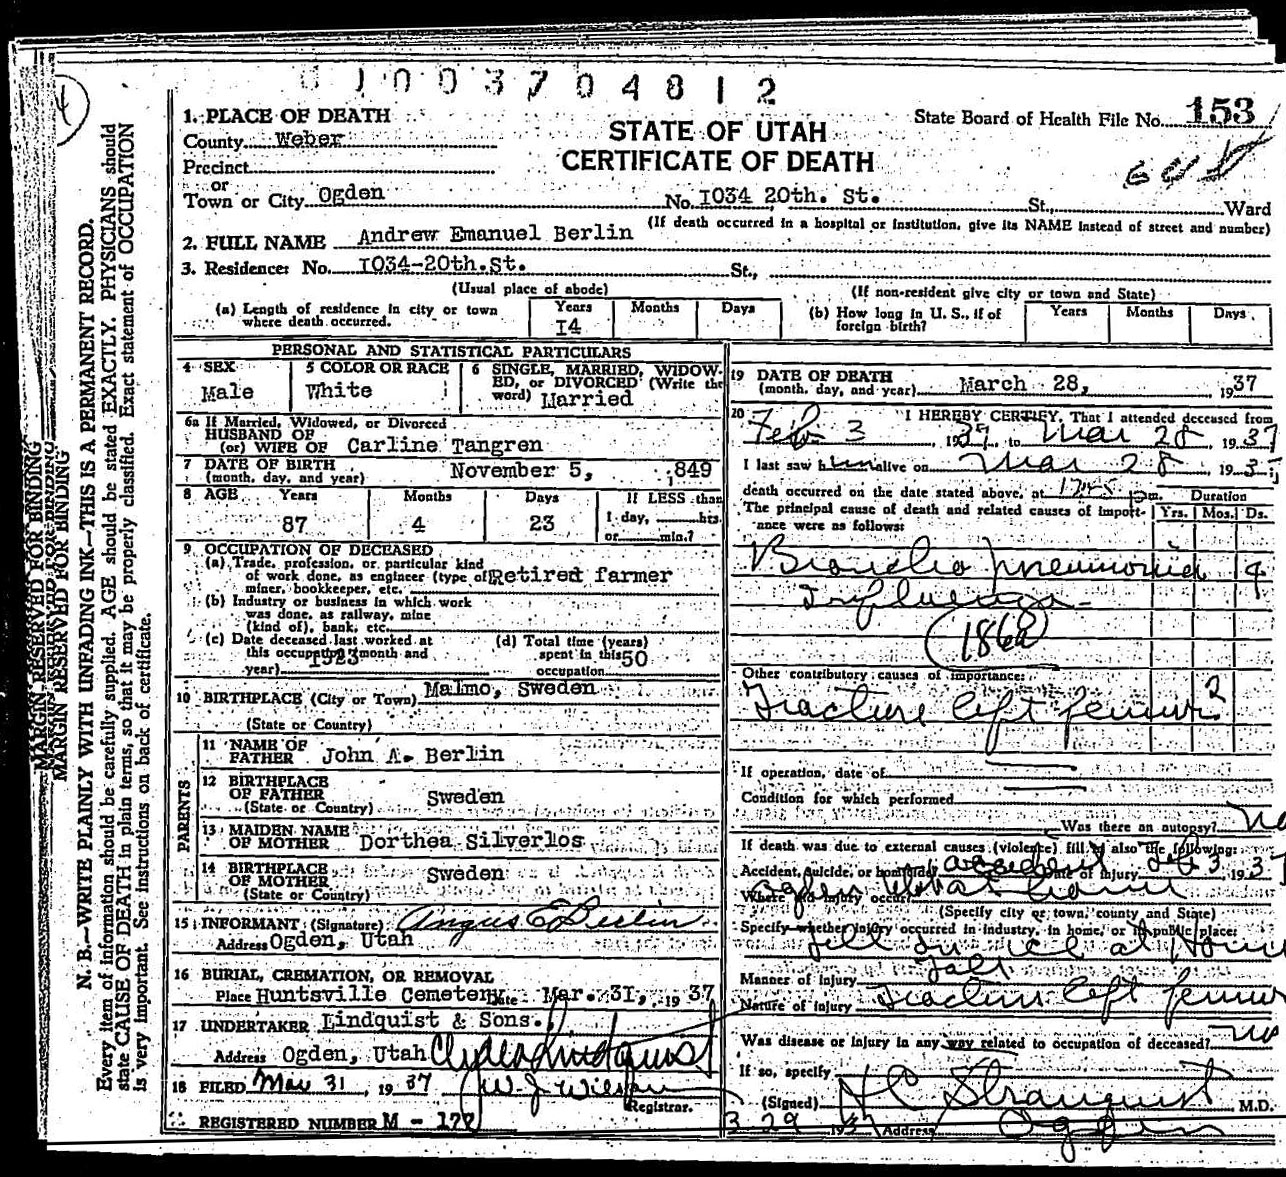 0 1 0 0 3 7 0 4 8 1 2
4
MARGIN RESERVED FOR BINDING
MARGIN RESERVED FOR BINDING
N. B.—WRITE PLAINLY WITH UNFADING INK—THIS IS A PERMANENT RECORD.
Every item of information should be carefully supplied. AGE should be stated EXACTLY. PHYSICIANS should
state CAUSE OF DEATH in plain terms, so that it may be properly classified. Exact statement of OCCUPATION
is very important. See instructions on back of certificate.
State Board of Health File No. 153
STATE OF UTAH
CERTIFICATE OF DEATH
1. PLACE OF DEATH
County Weber
Precinct
or
Town or City Ogden No. 1034 20th. St. St., Ward
(If death occurred in a hospital or institution, give its NAME instead of street and number)
2. FULL NAME Andrew Emanuel Berlin
3. Residence: No. 1034-20th.St. St.,
(Usual place of abode) (If non-resident give city or town and State)
(a) Length of residence in city or town where death occurred. Years 14 Months Days
(b) How long in U. S., if of foreign birth? Years Months Days
PERSONAL AND STATISTICAL PARTICULARS
4 SEX Male
5 COLOR OR RACE White
6 SINGLE, MARRIED, WIDOWED, or DIVORCED (Write the word) Married
6a If Married, Widowed, or Divorced
HUSBAND OF
(or) WIFE OF Carline Tangren
7 DATE OF BIRTH
(month, day, and year) November 5, 849
8 AGE Years 87 Months 4 Days 23 If LESS than 1 day, hrs. or min.?
9 OCCUPATION OF DECEASED
(a) Trade, profession, or particular kind
of work done, as engineer (type of Retired farmer
miner, bookkeeper, etc.
(b) Industry or business in which work
was done, as railway, mine
(kind of), bank, etc.
(c) Date deceased last worked at
this occupation (month and
year) 1923
(d) Total time (years)
spent in this 50
occupation
10 BIRTHPLACE (City or Town) Malmo, Sweden
(State or Country)
PARENTS
11 NAME OF
FATHER John A. Berlin
12 BIRTHPLACE
OF FATHER Sweden
(State or Country)
13 MAIDEN NAME
OF MOTHER Dorthea Silverlos
14 BIRTHPLACE
OF MOTHER Sweden
(State or Country)
15 INFORMANT (Signature) Angus E. Berlin
Address Ogden, Utah
16 BURIAL, CREMATION, OR REMOVAL
Place Huntsville Cemetery Date Mar. 31, 19 37
17 UNDERTAKER Lindquist & Sons.
Address Ogden, Utah Clyde Lindquist
18 FILED Mar 31, 19 37 W J Wilson
Registrar.
REGISTERED NUMBER M - 177
19 DATE OF DEATH
(month, day, and year) March 28, 1937
20 I HEREBY CERTIFY, That I attended deceased from
Feb 3, 1937, to Mar 28, 1937
I last saw him alive on Mar 28, 193
death occurred on the date stated above, at pm. Duration
The principal cause of death and related causes of importance were as follows: Yrs. Mos. Ds.
Broncho pneumonia 4
Influenza
(186a)
Other contributory causes of importance:
Fracture left femur 2
If operation, date of
Condition for which performed
Was there an autopsy? No
If death was due to external causes (violence) fill in also the following:
Accident, suicide, or homicide? accident Date of injury Feb 3, 1937
Where did injury occur? Ogden
(Specify city or town, county and State)
Specify whether injury occurred in industry, in home, or in public place:
fell on ice at Home
Manner of injury Fall
Nature of injury Fracture left femur
Was disease or injury in any way related to occupation of deceased? no
If so, specify
(Signed) H C Stranquist M.D.
3 29 1937 Address Ogden